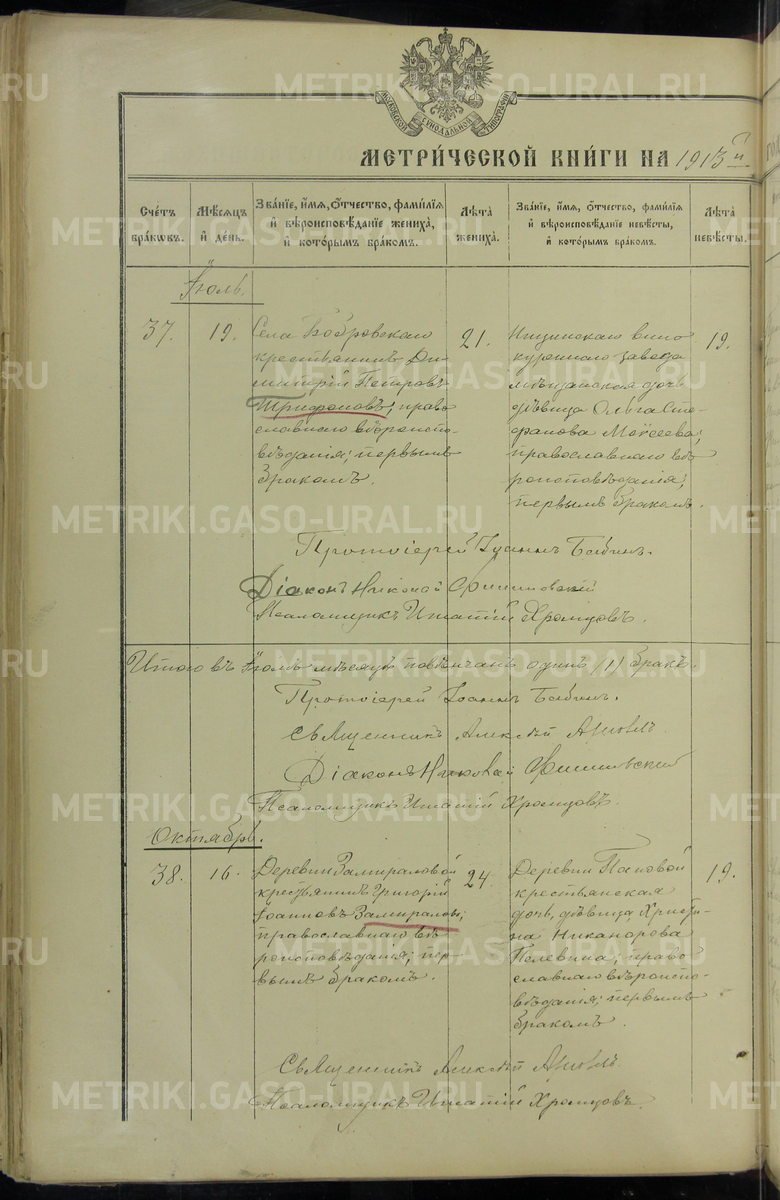 МОСКОВСКОЙ СѴНОДАЛЬНОЙ ТИПОГРАФІИ
МЕТРИ́ЧЕСКОЙ КНИ́ГИ НА 1913 й
Сче́тъ бра́кѡвъ.
Мѣ́сяцъ и҆ де́нь.
Зва́нїе, и҆́мя, ѻ҆́тчество, фами́лїя и҆ вѣроисповѣ́данїе жениха̀, и҆ кото́рымъ бра́комъ.
Лѣ́та жениха̀.
Зва́нїе, и҆́мя, ѻ҆́тчество, фами́лїя и҆ вѣроисповѣ́данїе невѣ́сты, и҆ кото́рымъ бра́комъ.
Лѣ́та невѣ́сты.
Іюль.
37.
19.
Села Бобровскаго
крестьянинъ Ди-
митрій Петровъ
Трифоновъ, право
славнаго вѣроиспо-
вѣданія; первымъ
бракомъ.
21.
Ницинскаго вино
куреннаго завода
мѣщанская дочь
дѣвица Ольга Сте-
фанова Моисеева;
православнаго вѣ
роисповѣданія;
первымъ бракомъ.
19.
Протоіерей Іоаннъ Бабинъ.
Діаконъ Николай
Псаломщикъ Игнатій Хромцовъ.
Итого въ Іюлѣ мѣсяцѣ повѣнчанъ одинъ (1) бракъ.
Протоіерей Іоаннъ Бабинъ.
Священникъ Алексій
Діаконъ Николай
Псаломщикъ Игнатій Хромцовъ.
Октябрь.
38.
16.
Деревни Замираловой
крестьянинъ Григорій
Іоанновъ Замираловъ;
православнаго вѣ
роисповѣданія; пер-
вымъ бракомъ.
24.
Деревни Пановой
крестьянская
дочь, дѣвица Христи-
на Никанорова
Пелевина; право
славнаго вѣроиспо-
вѣданія; первымъ
бракомъ.
19.
Священникъ Алексій
Псаломщикъ Игнатій Хромцовъ.
METRIKI.GASO-URAL.RU